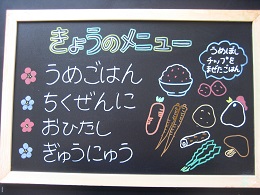 きょうのメニュー
うめぼし
チップを
まぜたごはん
うめごはん
ちくぜんに
おひたし
ぎゅうにゅう